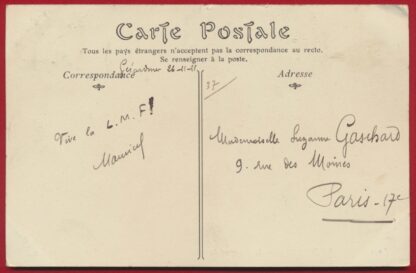 Carte Postale
Tous les pays étrangers n'acceptent pas la correspondance au recto.
Se renseigner à la poste.
Correspondance
Gérardmer 26-11-11
Vive la L.M.F!
Maurice
Adresse
37
Mademoiselle Suzanne Gaschard
9. rue des Moines
Paris-17e